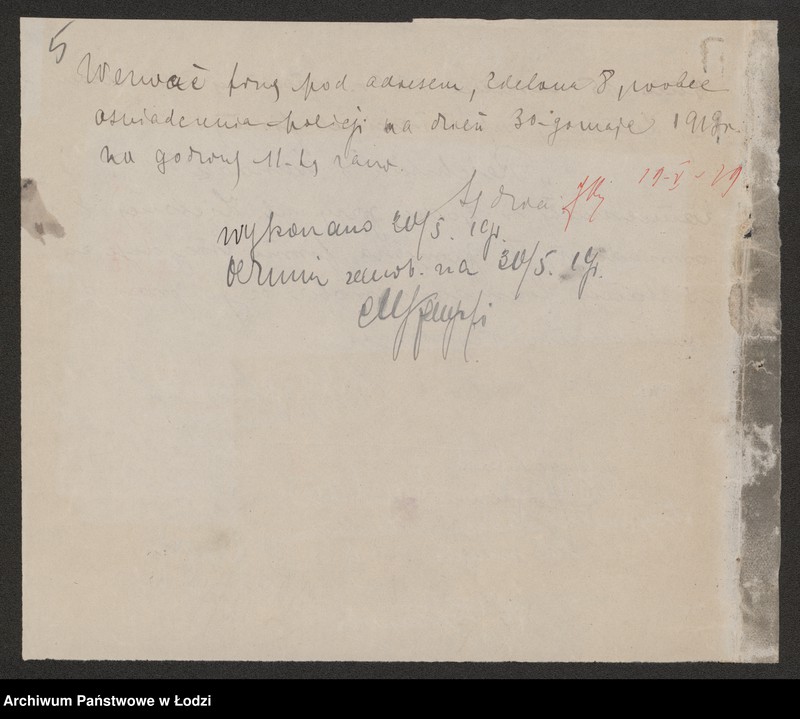 5
Wezwać firmę pod adresem, Zielona 8, wobec
oświadczenia policji na dzień 30-go maja 1919 r.
na godzinę 11-tą rano.
Sędzia 19-V-19
wykonano 20/5. 19 r.
na 30/5. 19 r.
Archiwum Państwowe w Łodzi